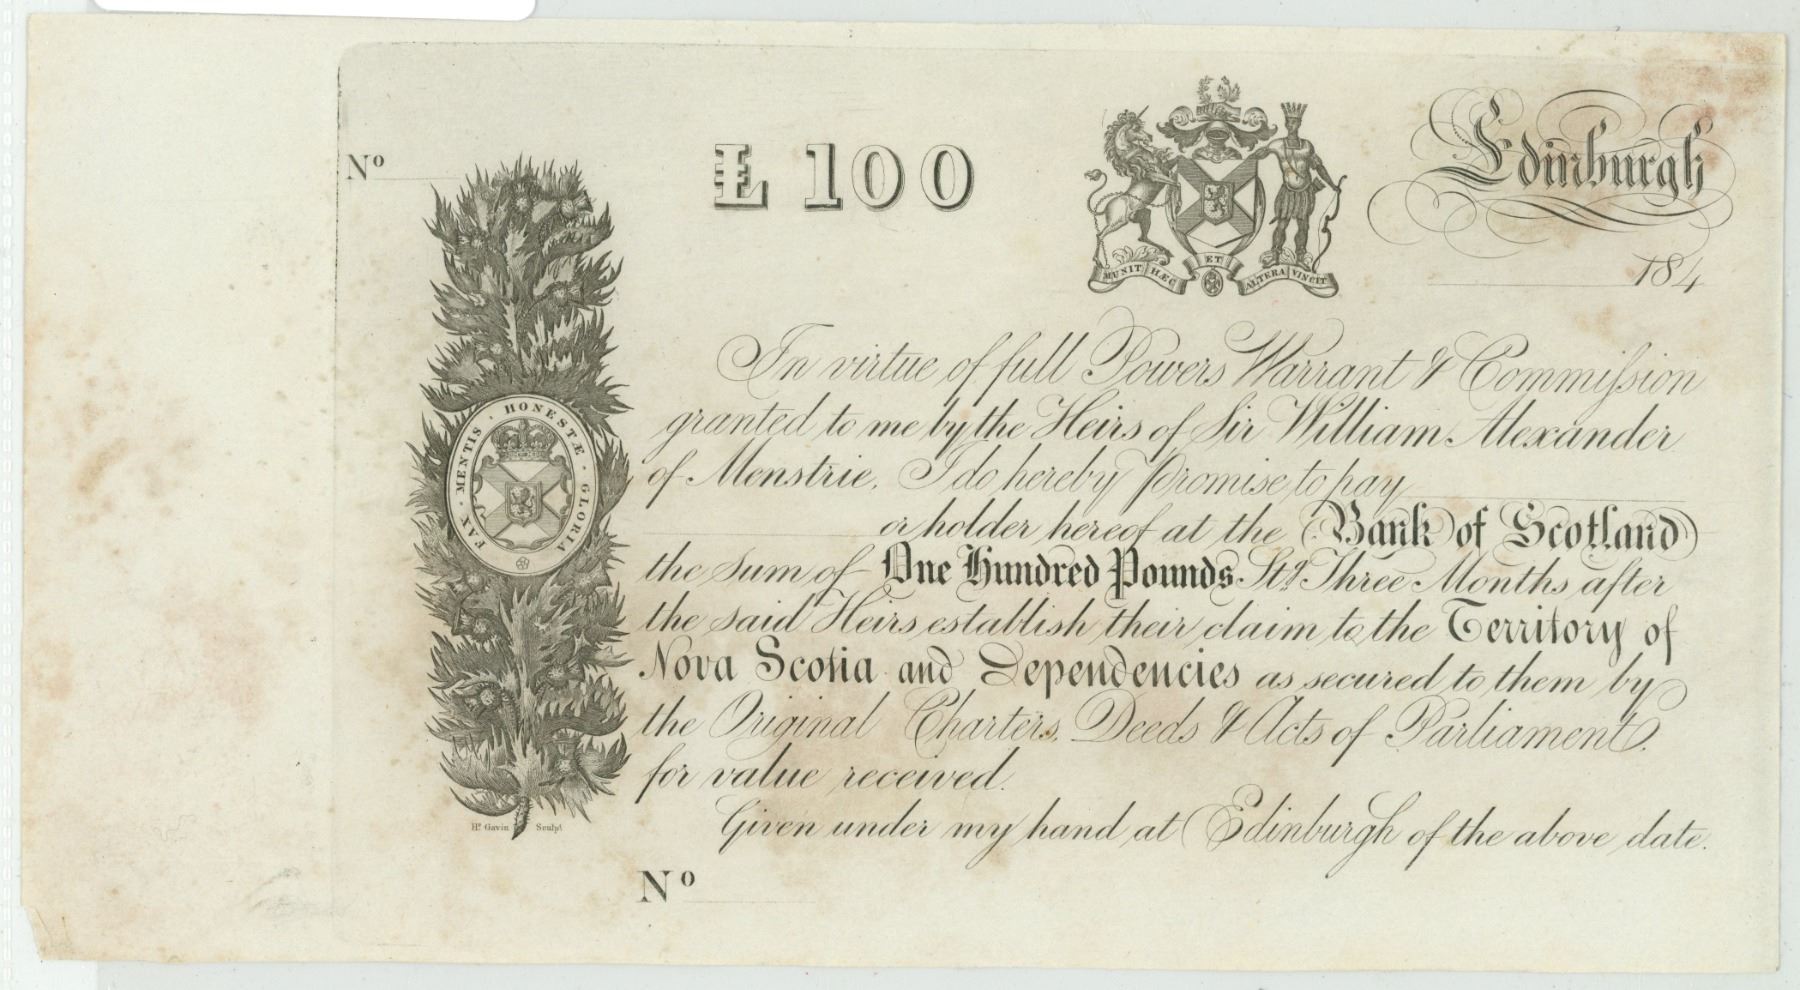 No
£ 100
MUNIT HÆC ET ALTERA VINCIT
Edinburgh
184
FAX · MENTIS · HONESTÆ · GLORIA
In virtue of full Powers Warrant & Commiſsion
granted to me by the Heirs of Sir William Alexander
of Menstrie, I do hereby promise to pay
or holder hereof at the Bank of Scotland
the sum of One Hundred Pounds Stg. Three Months after
the said Heirs establish their claim to the Territory of
Nova Scotia and Dependencies as secured to them by
the Original Charters, Deeds & Acts of Parliament.
for value received.
Given under my hand at Edinburgh of the above date.
Hh Gavin Sculpt
No